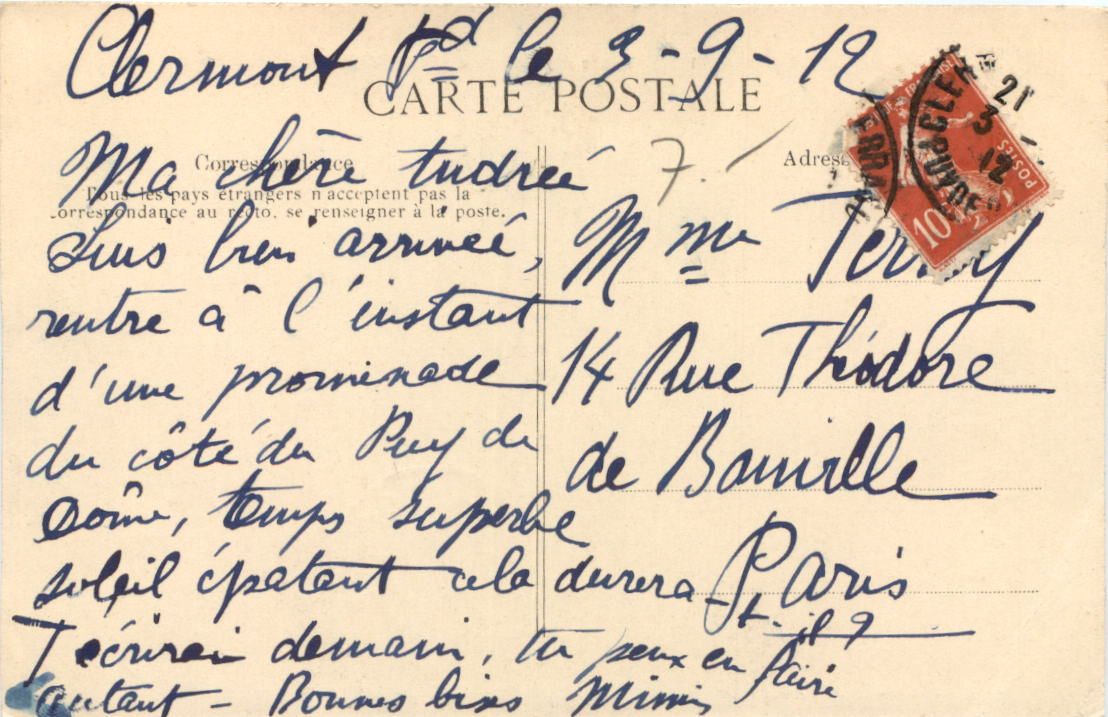 Clermont Fd le 3-9-12
CARTE POSTALE
Correspondance
Adresse
Ma chère Andrée
Tous les pays étrangers n'acceptent pas la
correspondance au recto, se renseigner à la poste.
7.
Suis bien arrivée,
rentre à l'instant
d'une promenade
du côté du Puy de
Dôme, temps superbe
soleil épatant cela durera-t-il ?
T'écrirai demain, tu peux en faire
autant - Bonnes bises Mimi
Mme
14 Rue Théodore
de Banville
Paris
21
3
12
POSTES
10